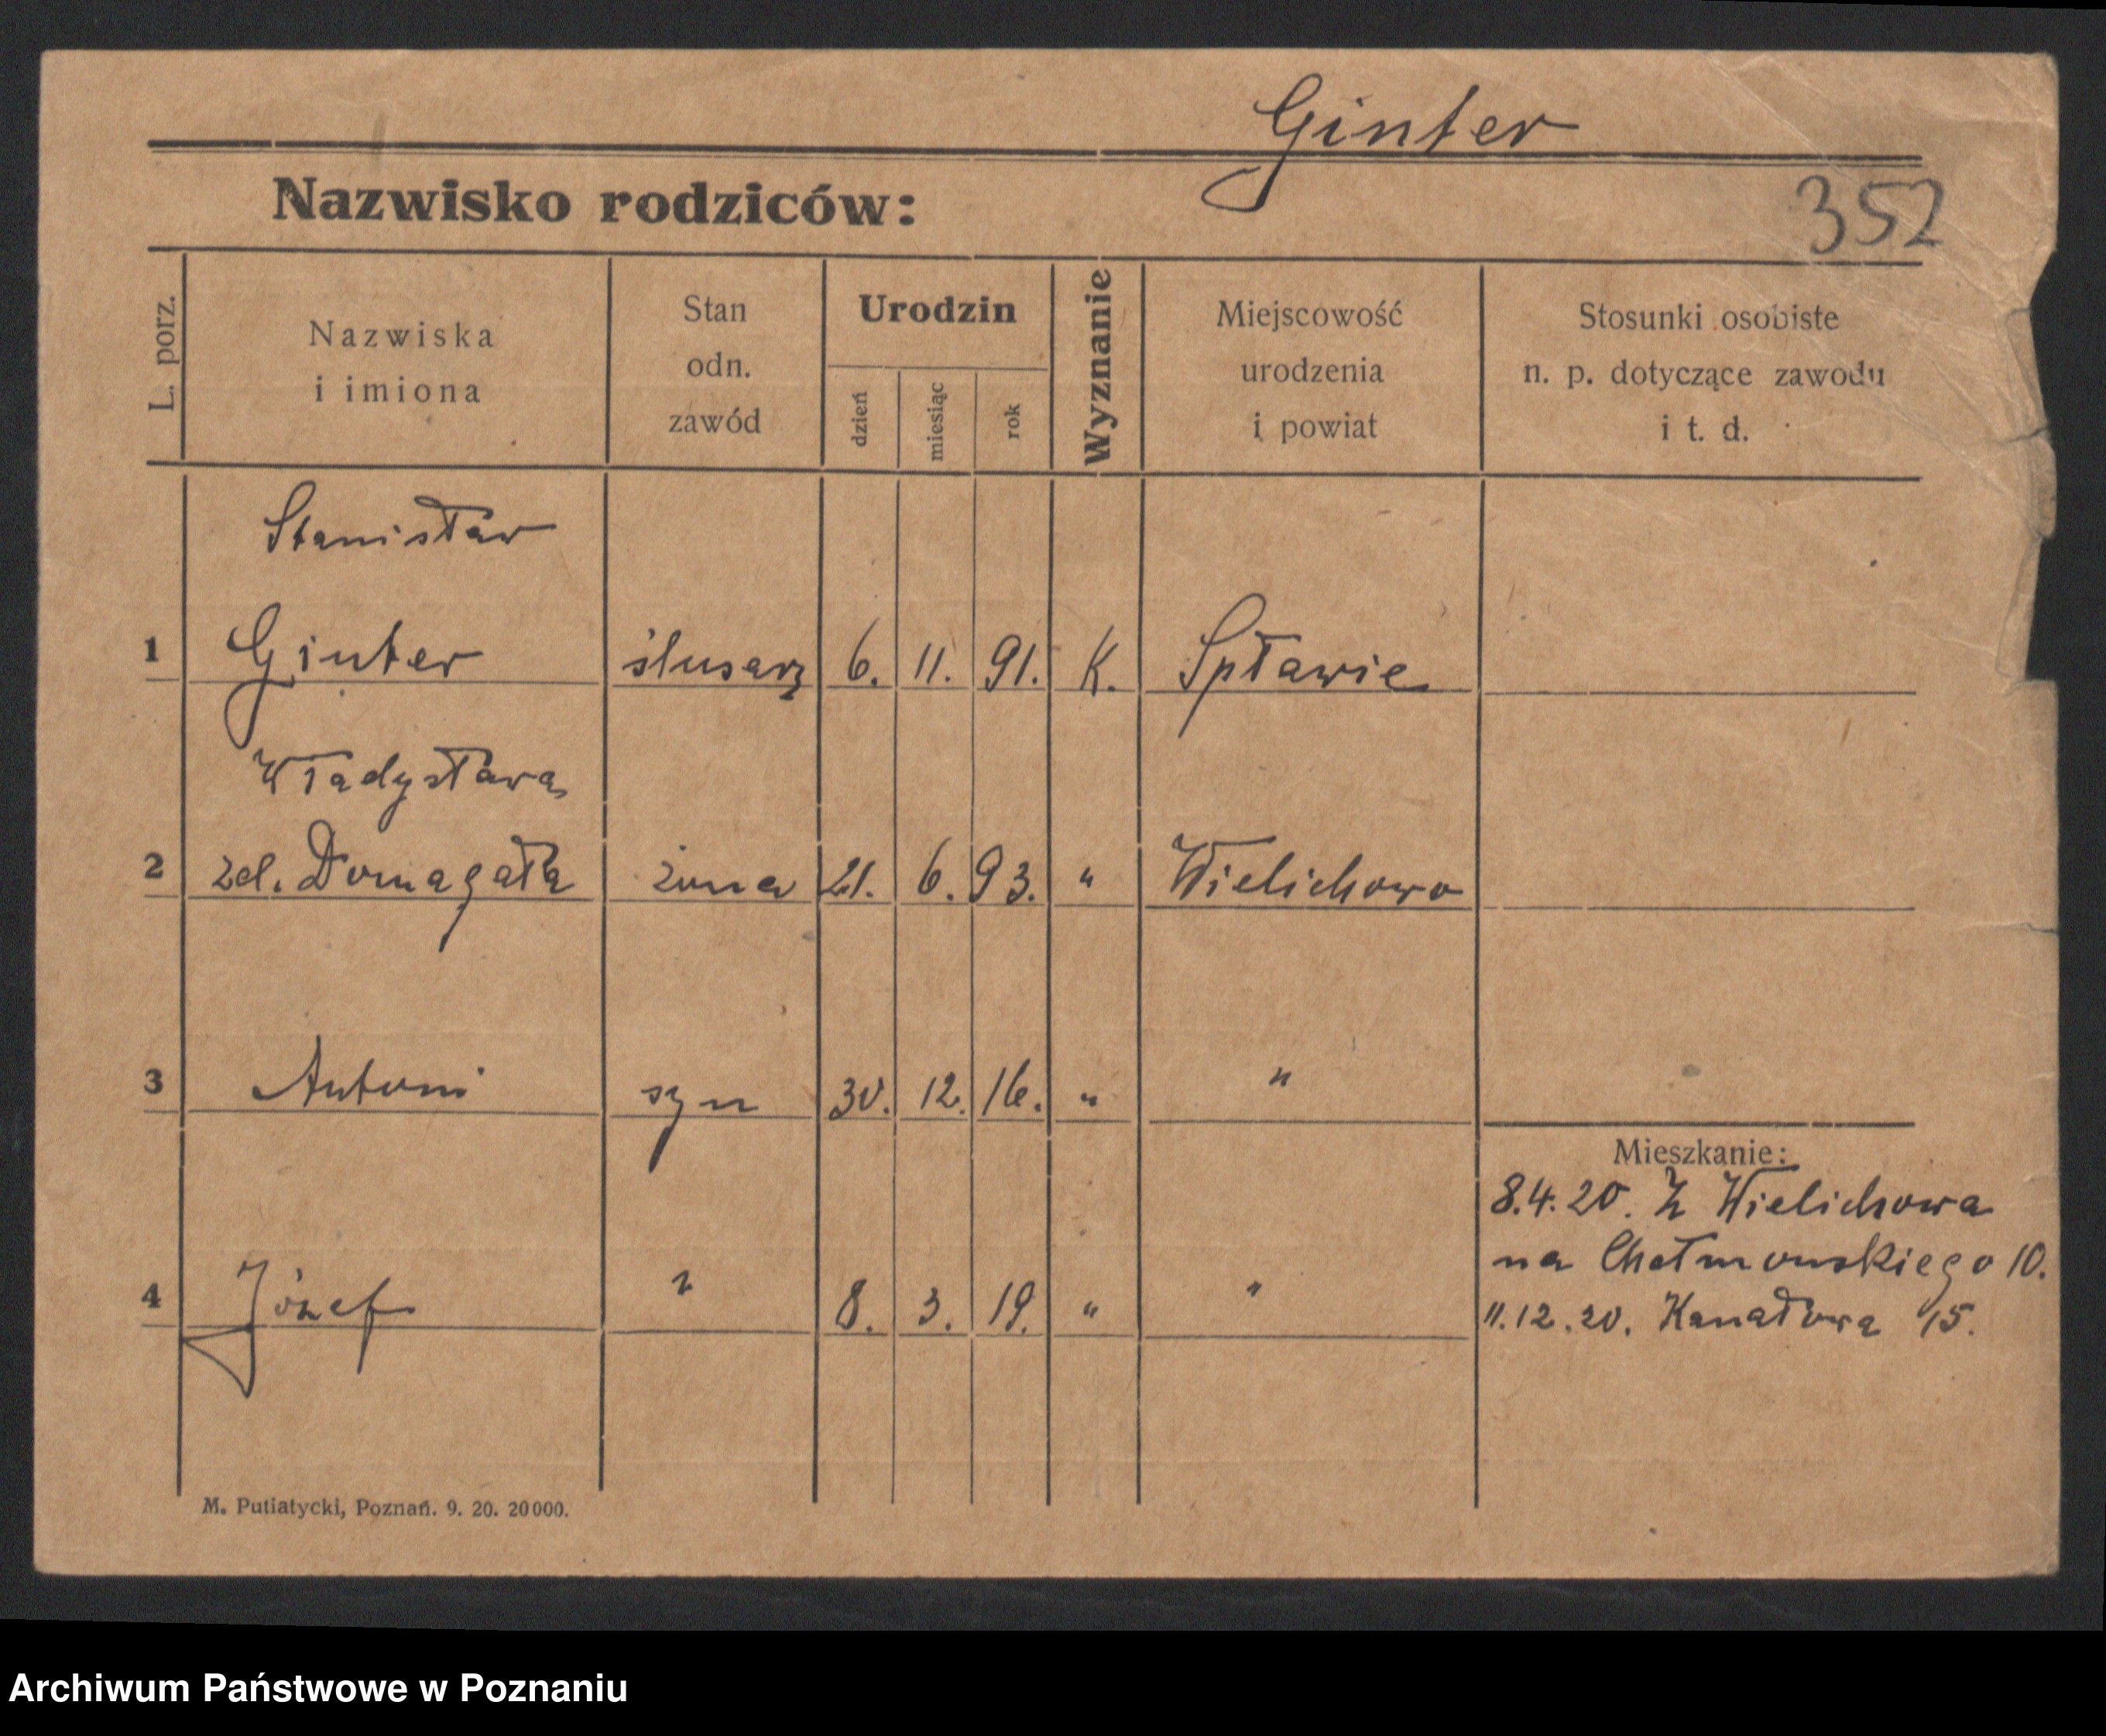 Ginter
Nazwisko rodziców:
352
L. porz.
Nazwiska
i imiona
Stan
odn.
zawód
Urodzin
dzień
miesiąc
rok
Wyznanie
Miejscowość
urodzenia
i powiat
Stosunki osobiste
n. p. dotyczące zawodu
i t. d.
Stanisław
1 Ginter ślusarz 6. 11. 91. K. Spławie
Władysława
2 zd. Domagała żona 21. 6. 93. " Wielichowo
3 Antoni syn 30. 12. 16. " "
Mieszkanie:
8.4.20. Z Wielichowa
na Chełmońskiego 10.
4 Józef " 8. 3. 19. " "
11.12.20. Kanałowa 15.
M. Putiatycki, Poznań. 9. 20. 20000.
Archiwum Państwowe w Poznaniu